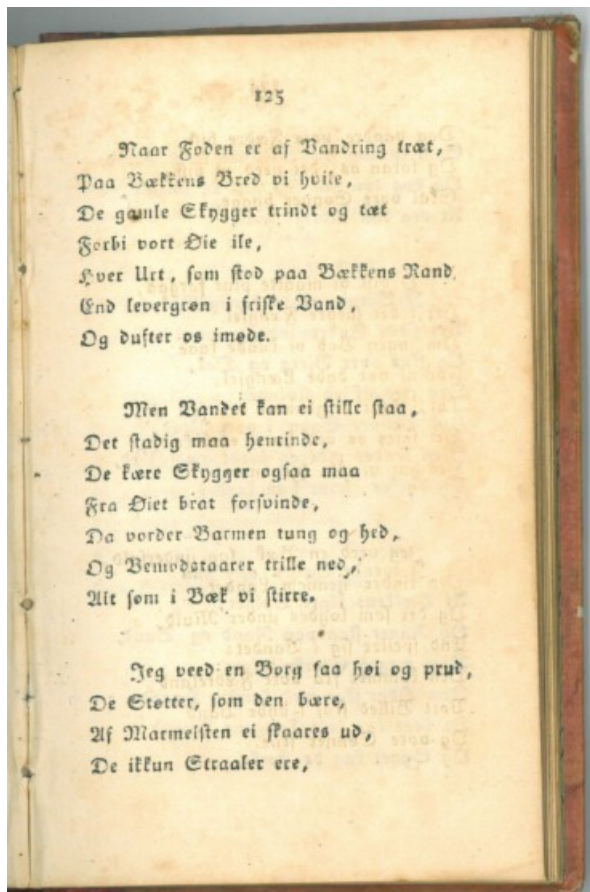 125
Naar Foden er af Vandring træt,
Paa Bækkens Bred vi hvile,
De gamle Skygger trindt og tæt
Forbi vort Øie ile,
Hver Urt, som stod paa Bækkens Rand,
End levergrøn i friske Vand,
Og dufter os imøde.
Men Vandet kan ei stille staa,
Det stadig maa henrinde,
De kære Skygger ogsaa maa
Fra Øiet brat forsvinde,
Da vorder Barmen tung og hed,
Og Vemodstaarer trille ned,
Alt som i Bæk vi stirre.
Jeg veed en Borg saa høi og prud,
De Støtter, som den bære,
Af Marmelsten ei skaares ud,
De ikkun Straaler ere,